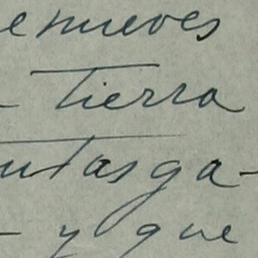 e nueves
- Tierra
utas ga-
- y que